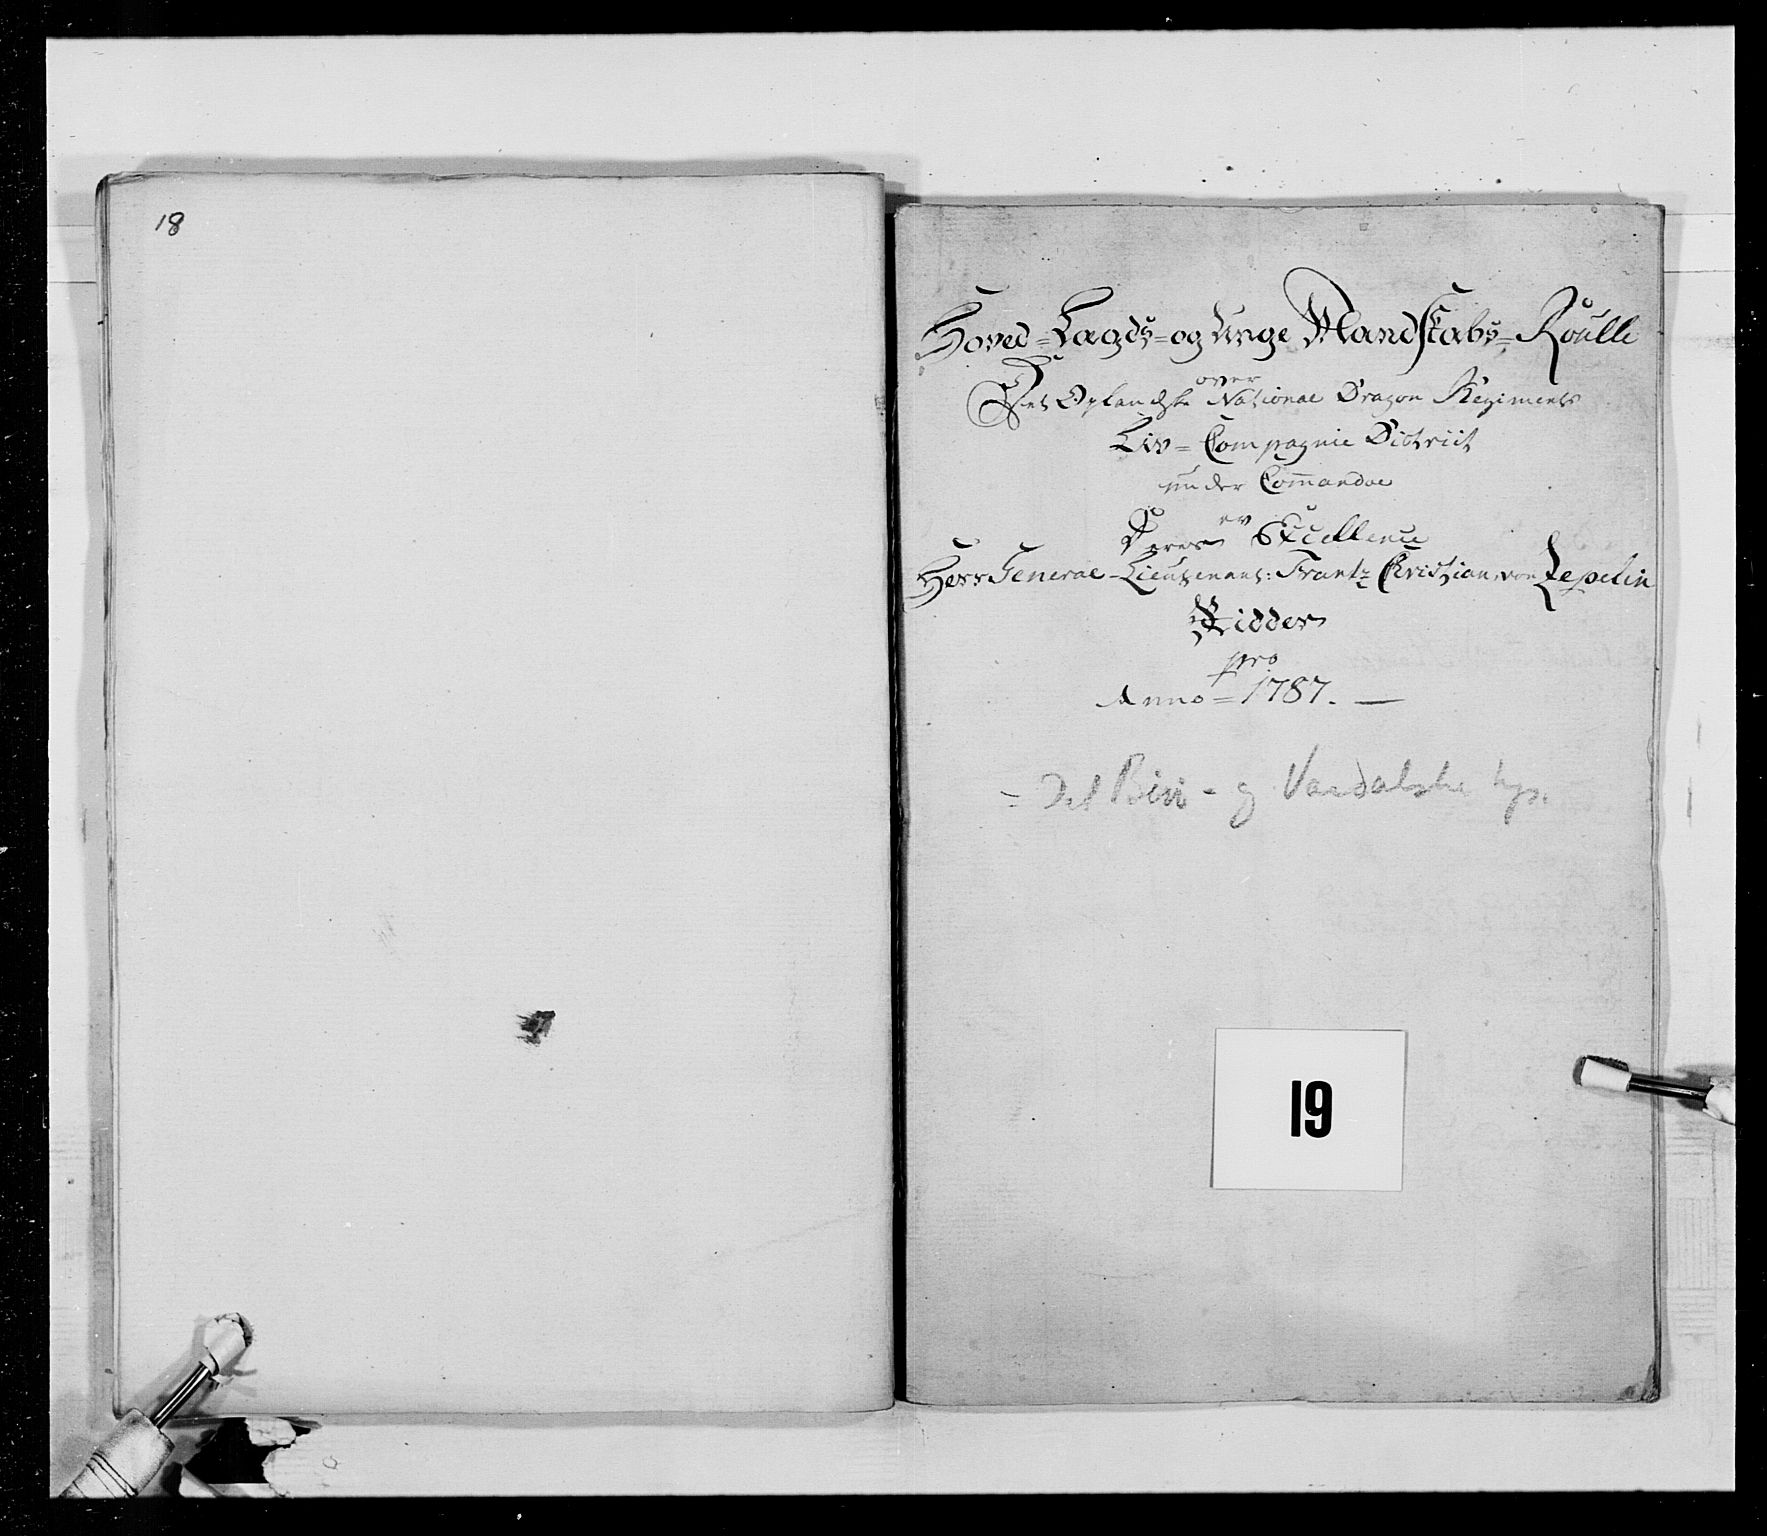 18
Hoved=Lægds=og Unge Mandskabs=Roulle
over
Det Oplandske National Dragon Regiments
Liv=Compagnie District
under Commandoe
ev
Deres Excellence
Herr General-Lieutenant: Frantz Christian von Zepelin
Ridder
pro
Anno=1787. —
= Det Biri- og Vardalske kp.
19